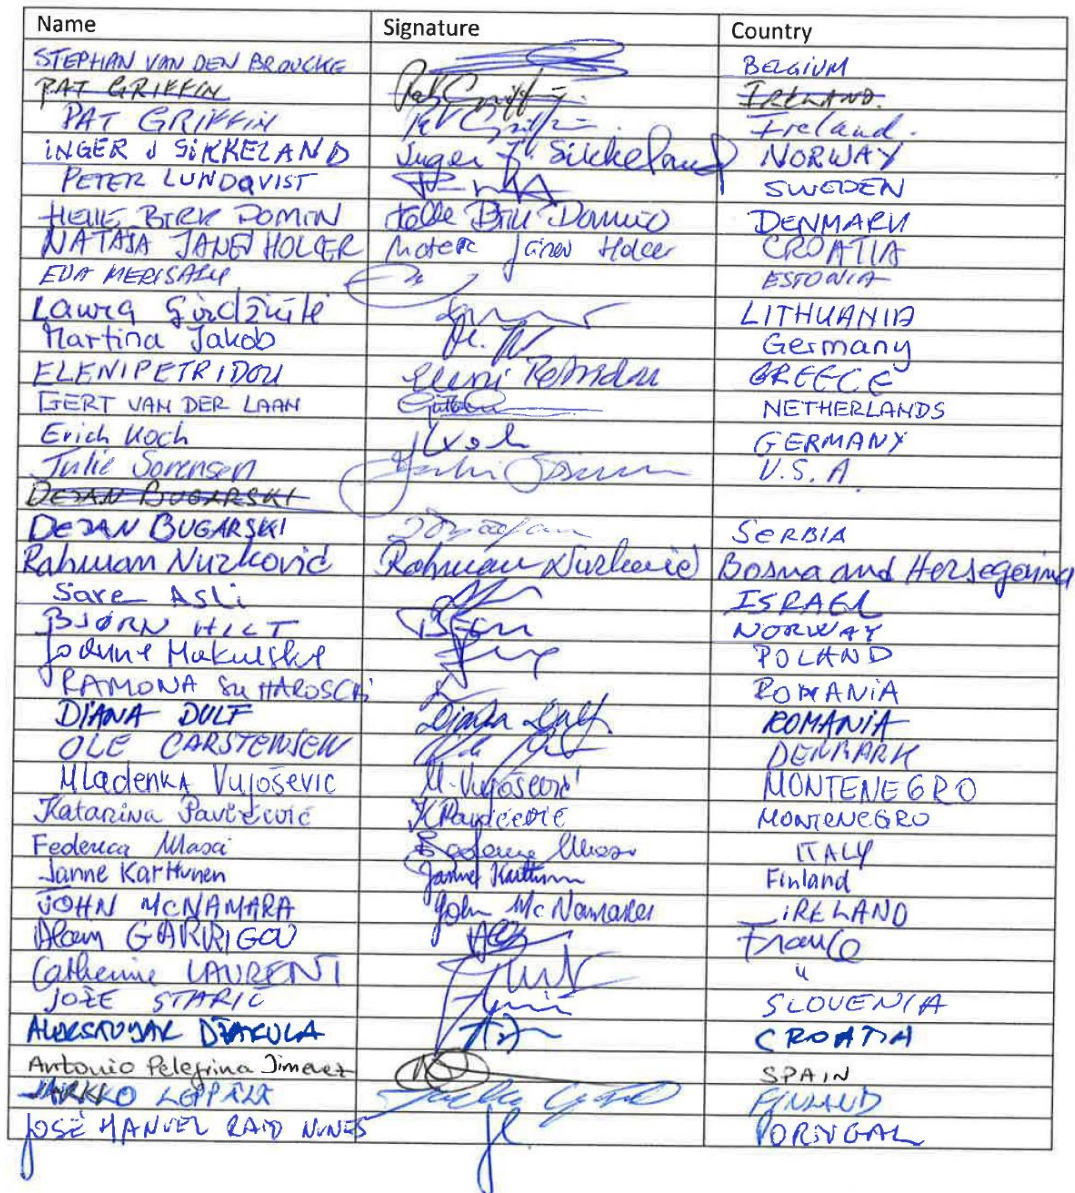 Name Signature Country
STEPHAN VAN DEN BROUCKE BELGIUM
PAT GRIFFIN Pat Griffin IRELAND.
PAT GRIFFIN Pat Griffin Ireland.
INGER J SIKKELAND Inger J. Sikkeland NORWAY
PETER LUNDQVIST SWEDEN
HELLE BIRK DOMINO Helle Birk Domino DENMARK
NATAŠA JANEV HOLCER Janev Holcer CROATIA
EDA MERISALU ESTONIA
Laura LITHUANIA
Martina Jakob Germany
ELENI PETRIDOU Eleni Petridou GREECE
GERT VAN DER LAAN NETHERLANDS
Erich Koch Koch GERMANY
Julie Sorensen Julie Sorensen U.S.A
DEJAN BUGARSKI
DEJAN BUGARSKI SERBIA
Rahman Nurković Rahman Nurković Bosna and Hersegovina
Sare ASLi ISRAEL
BJØRN HILT NORWAY
POLAND
RAMONA SUHAROSCHI ROMANiA
DIANA DULF Diana Dulf ROMANiA
OLE CARSTENSEN DENMARK
Mladenka Vujošević M. Vujošević MONTENEGRO
Katarina Pavićević K Pavićević MONTENEGRO
Federica Masci ITALY
Janne Karttunen Janne Karttunen Finland
JOHN McNAMARA John McNamara iRELAND
Alain GARRIGOU France
Catherine LAURENT "
JOŽE STARIČ SLOVENIA
DŽAKULA CROATIA
Antonio Pelegrina Jimenez SPAIN
JARKKO LEPPÄLÄ FINLAND
JOSÉ MANUEL NUNES PORTUGAL